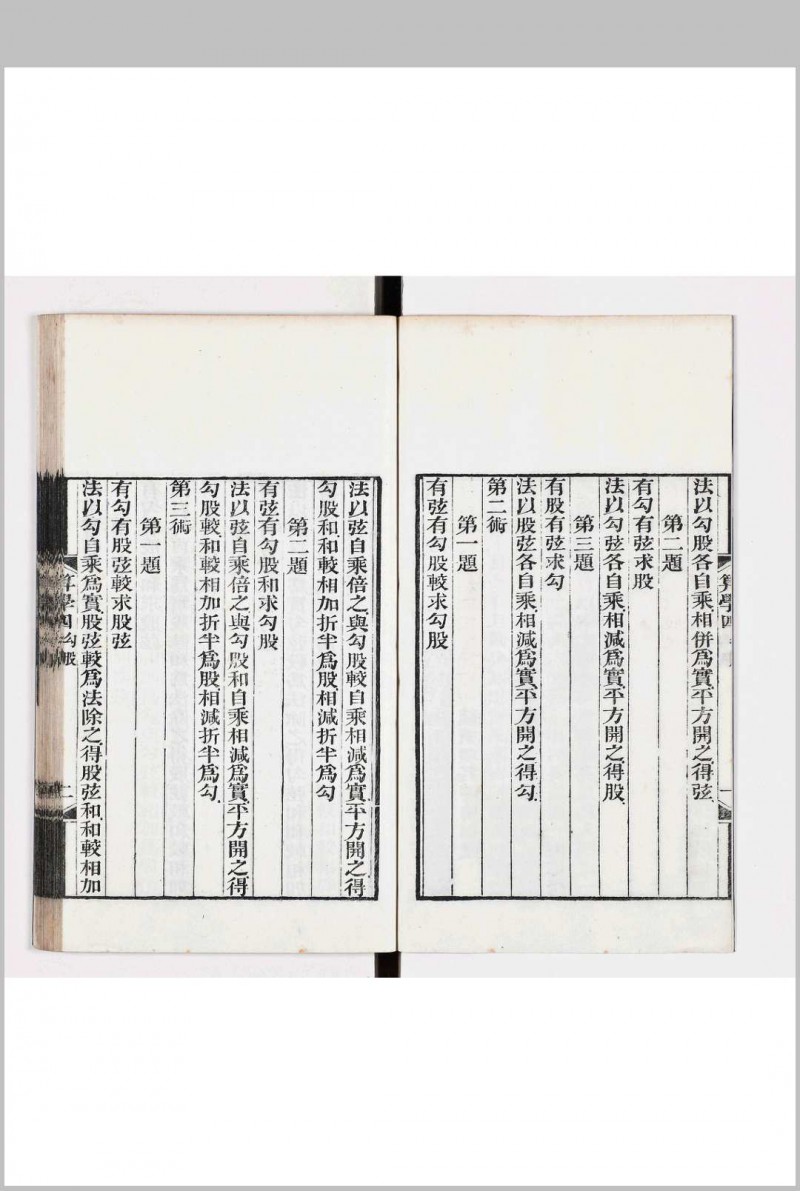 法以勾股各自乘相併爲實平方開之得弦
第二題
有勾有弦求股
法以勾弦各自乘相減爲實平方開之得股
第三題
有股有弦求勾
法以股弦各自乘相減爲實平方開之得勾
第二術
第一題
有弦有勾股較求勾股
法以弦自乘倍之與勾股較自乘相減爲實平方開之得
勾股和和較相加折半爲股相減折半爲勾
第二題
有弦有勾股和求勾股
法以弦自乘倍之與勾股和自乘相減爲實平方開之得
勾股較和較相加折半爲股相減折半爲勾
第三術
第一題
有勾有股弦較求股弦
法以勾自乘爲實股弦較爲法除之得股弦和和較相加
算學四勾股
二